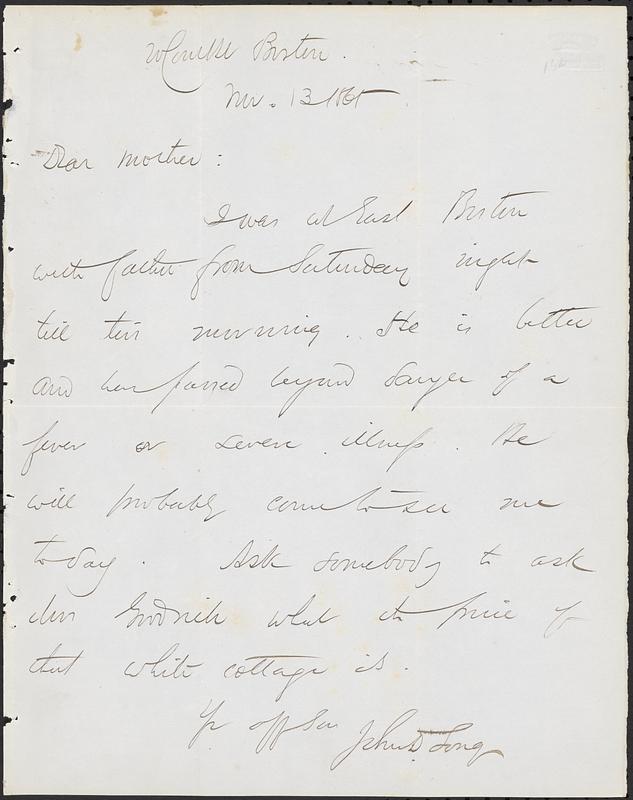 Boston.
Nov. 13 1865
Dear mother:
I was at East Boston
with father from Saturday night
till this morning. He is better
and has passed beyond danger of a
fever or severe illness. He
will probably come to see me
to-day. Ask somebody to ask
Mrs Goodrich what the price of
that white cottage is.
Yr aff Son John D. Long